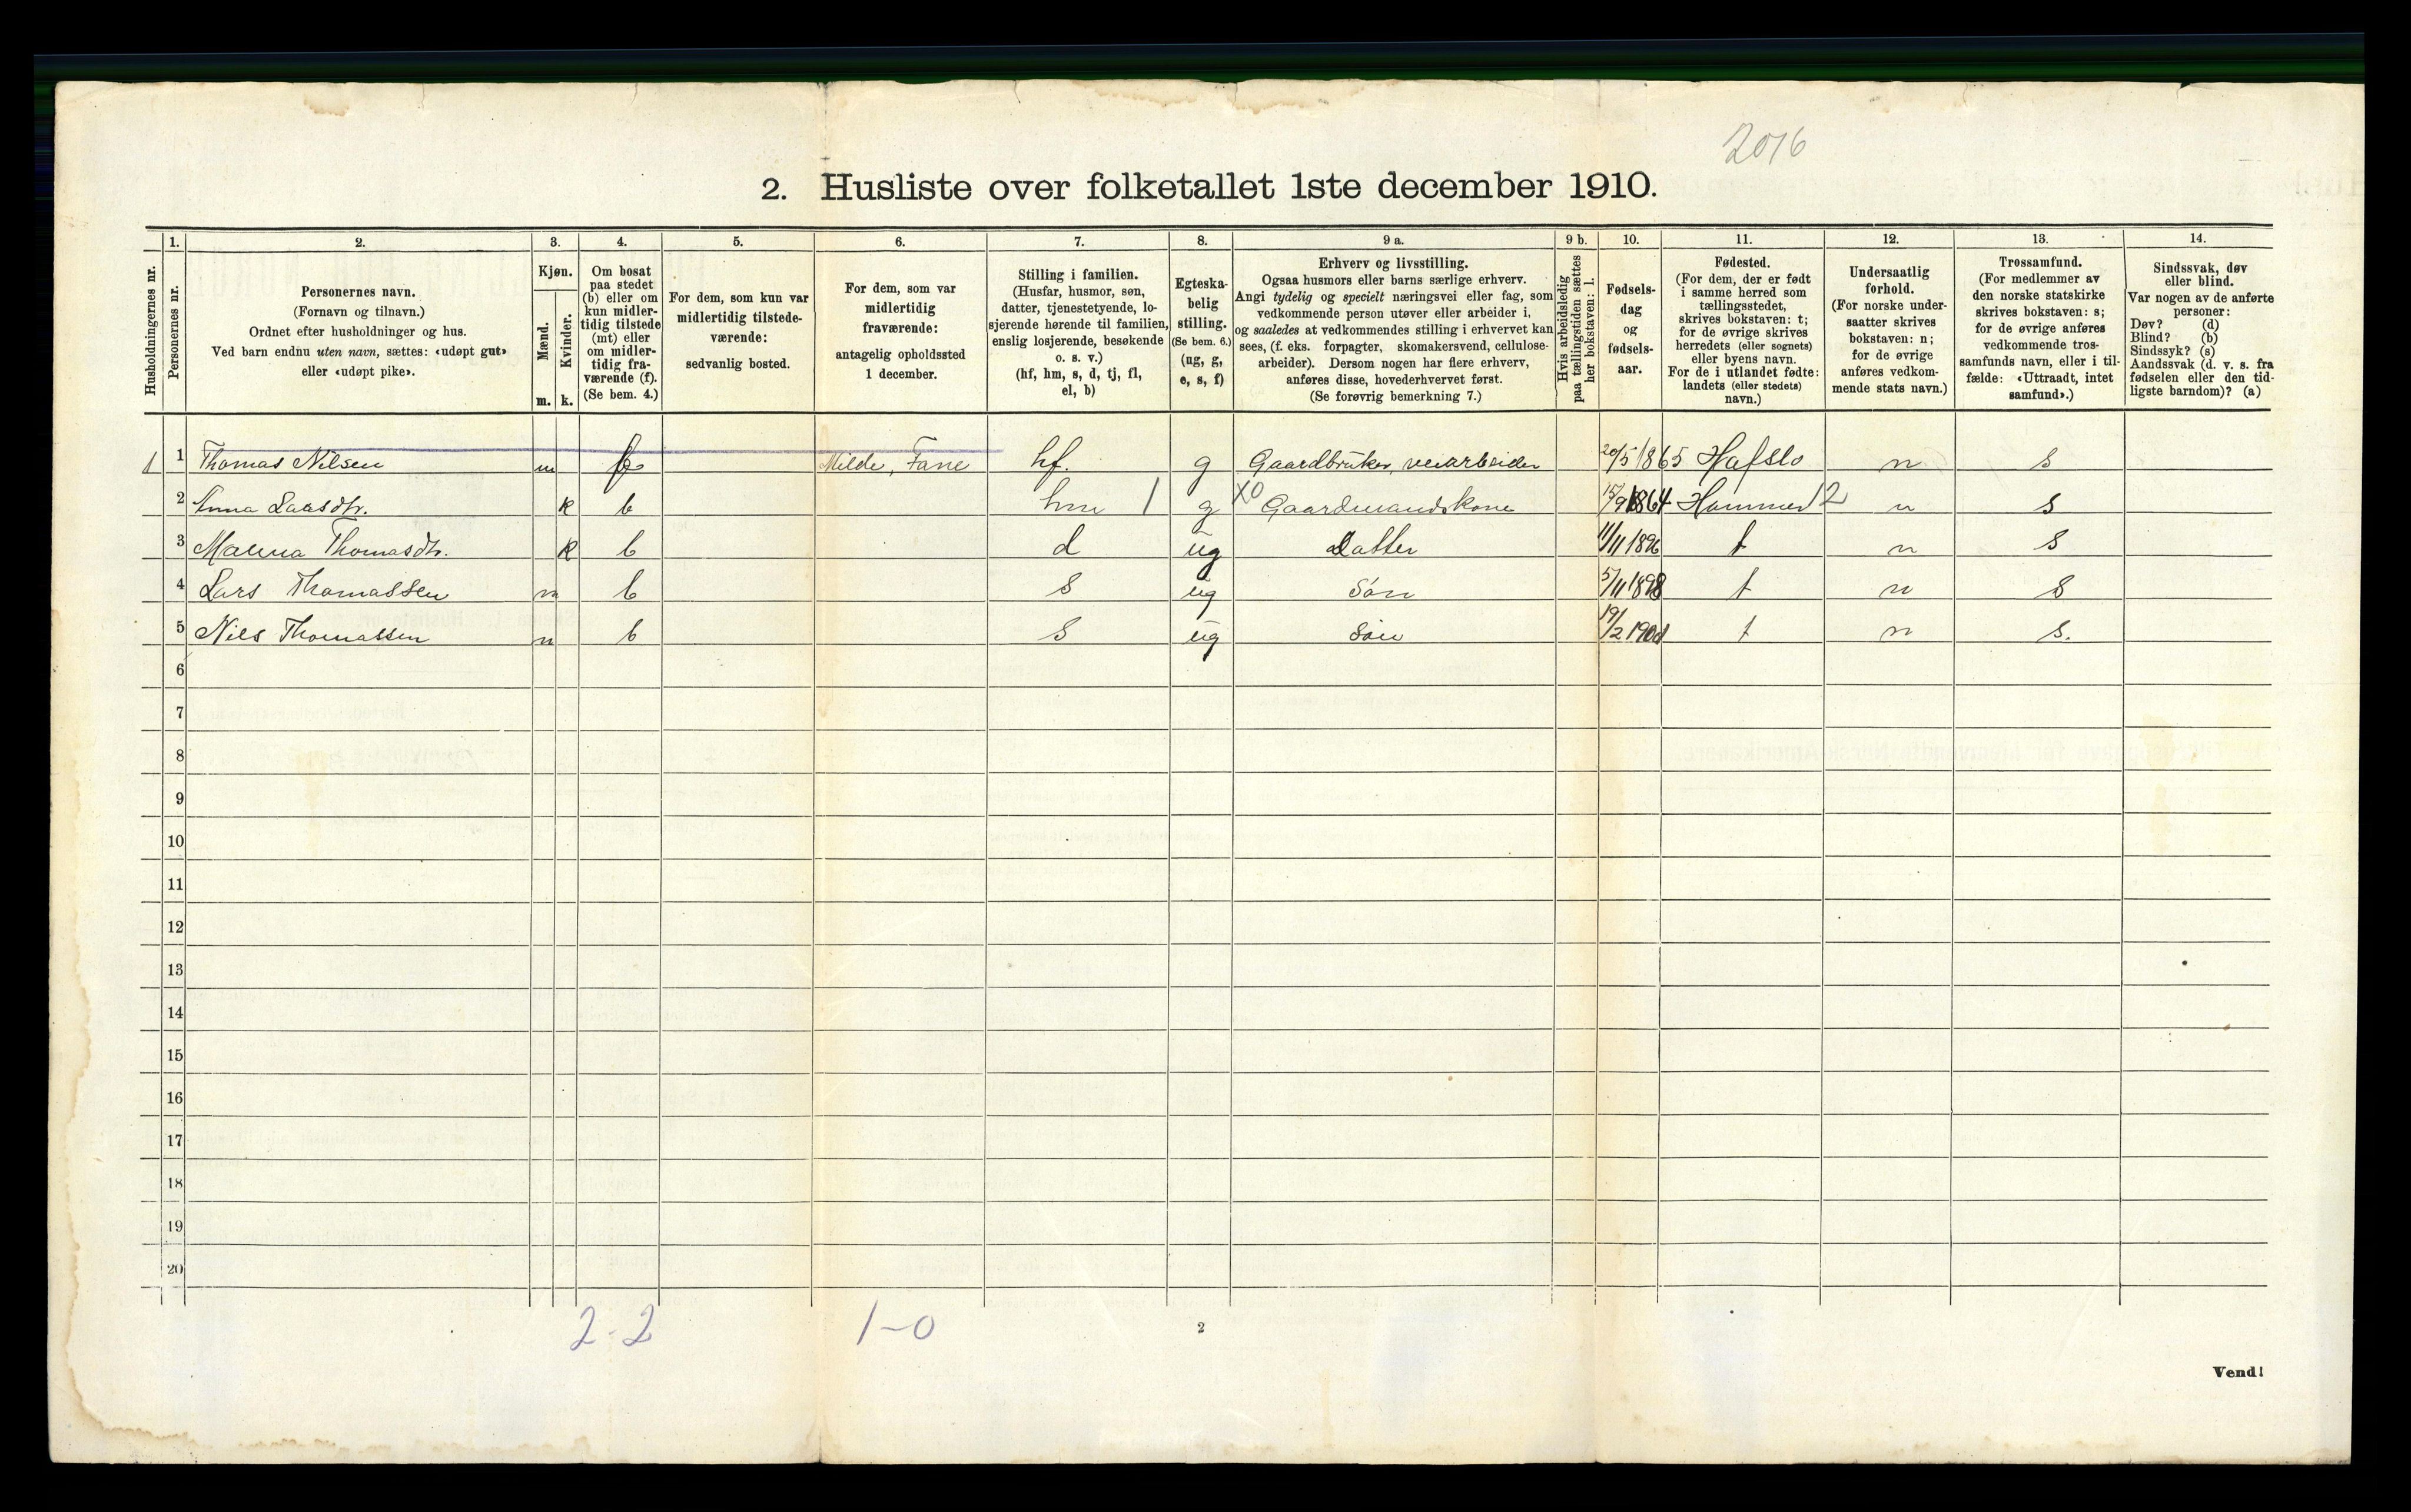 2016
2. Husliste over folketallet 1ste december 1910.
Husholdningernes nr.
1. Personernes nr.
2. Personernes navn.
(Fornavn og tilnavn.)
Ordnet efter husholdninger og hus.
Ved barn endnu uten navn, sættes: «udøpt gut»
eller «udøpt pike».
3. Kjøn.
Mænd. m.
Kvinder. k.
4. Om bosat
paa stedet
(b) eller om
kun midler-
tidig tilstede
(mt) eller
om midler-
tidig fra-
værende (f).
(Se bem. 4.)
5. For dem, som kun var
midlertidig tilstede-
værende:
sedvanlig bosted.
6. For dem, som var
midlertidig
fraværende:
antagelig opholdssted
1 december.
7. Stilling i familien.
(Husfar, husmor, søn,
datter, tjenestetyende, lo-
sjerende hørende til familien,
enslig losjerende, besøkende
o. s. v.)
(hf, hm, s, d, tj, fl,
el, b)
8. Egteska-
belig
stilling.
(Se bem. 6.)
(ug, g,
e, s, f)
9 a. Erhverv og livsstilling.
Ogsaa husmors eller barns særlige erhverv.
Angi tydelig og specielt næringsvei eller fag, som
vedkommende person utøver eller arbeider i,
og saaledes at vedkommendes stilling i erhvervet kan
sees, (f. eks. forpagter, skomakersvend, cellulose-
arbeider). Dersom nogen har flere erhverv,
anføres disse, hovederhvervet først.
(Se forøvrig bemerkning 7.)
9 b. Hvis arbeidsledig
paa tællingstiden sættes
her bokstaven: l.
10. Fødsels-
dag
og
fødsels-
aar.
11. Fødested.
(For dem, der er født
i samme herred som
tællingsstedet,
skrives bokstaven: t;
for de øvrige skrives
herredets (eller sognets)
eller byens navn.
For de i utlandet fødte:
landets (eller stedets)
navn.)
12. Undersaatlig
forhold.
(For norske under-
saatter skrives
bokstaven: n;
for de øvrige
anføres vedkom-
mende stats navn.)
13. Trossamfund.
(For medlemmer av
den norske statskirke
skrives bokstaven: s;
for de øvrige anføres
vedkommende tros-
samfunds navn, eller i til-
fælde: «Uttraadt, intet
samfund».)
14. Sindssvak, døv
eller blind.
Var nogen av de anførte
personer:
Døv? (d)
Blind? (b)
Sindssyk? (s)
Aandssvak (d. v. s. fra
fødselen eller den tid-
ligste barndom)? (a)
1 1 Thomas Nilsen m f Milde, Fane hf. g Gaardbruker, veiarbeider 20/5 1865 Hafslo n s
2 Anna Larsdtr. k b hm 1 g X0 Gaardmandskone 15/9 1864 Hammer 12 n s
3 Thomasdtr. k b d ug Datter 11/11 1896 t n s
4 Lars Thomassen m b s ug Søn 5/11 1898 t n s
5 Nils Thomassen m b s ug Søn 19/2 t n s.
6
7
8
9
10
11
12
13
14
15
16
17
18
19
20
2-2 1-0
2
Vend!